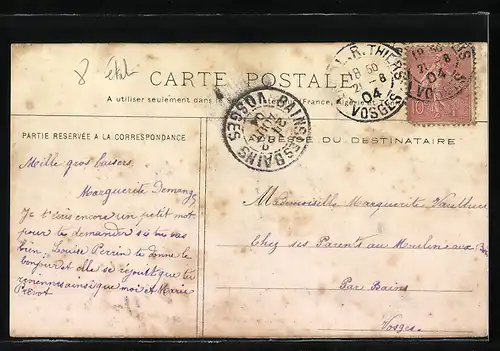 8 état
CARTE POSTALE
A utiliser seulement dans le France, Algérie et
PARTIE RÉSERVÉE A LA CORRESPONDANCE
DU DESTINATAIRE
R. THIERS
18 30
21 8
04
VOSGES
BAINS LES BAINS
VOSGES
Mille gros baisers
Marguerite Demang
Je t'écris encore un petit mot
pour te demander si tu vas
bien. Louise Perrin te donne le
bonjour et elle se réjouit que tu
reviennes ainsi que moi et Marie
Prévot
Mademoiselle Marguerite
Chez ses Parents au Moulin aux
Par Bains
Vosges